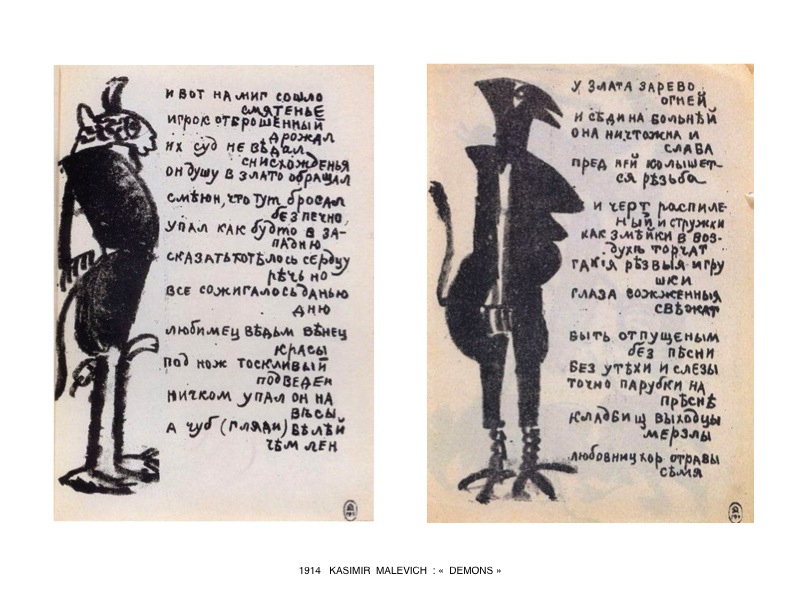 И ВОТ НА МИГ СОШЛО
СМЯТЕНЬЕ
ИГРОК ОТБРОШЕННЫЙ
ДРОЖАЛ
ИХ СУД НЕ ВѢДАЛ
СНИСХОЖДЕНЬЯ
ОН ДУШУ В ЗЛАТО ОБРАЩАЛ
СМѢЮН, ЧТО ТУТ БРОСАЛ
БЕЗПЕЧНО,
УПАЛ КАК БУДТО В ЗА-
ПАДНЮ
СКАЗАТЬ ХОТѢЛОСЬ СЕРДЦУ
РѢЧЬ НО
ВСЕ СОЖИГАЛОСЬ ДАНЬЮ
ДНЮ
ЛЮБИМЕЦ ВѢДЬМ ВѢНЕЦ
КРАСЫ
ПОД НОЖ ТОСКЛИВЫЙ
ПОДВЕДЕН
НИЧКОМ УПАЛ ОН НА
ВѢСЫ
А ЧУБ (ГЛЯДИ) БѢЛѢЙ
ЧѢМ ЛЕН
У ЗЛАТА ЗАРЕВО
ОГНЕЙ
И СѢДИНА БОЛЬНѢЙ
ОНА НИЧТОЖНА И
СЛАБА
ПРЕД НЕЙ КОЛЫШЕТ-
СЯ РѢЗЬБА
И ЧЕРТ РАСПИЛЕ-
НЫЙ И СТРУЖКИ
КАК ЗМѢЙКИ В ВОЗ-
ДУХѢ ТОРЧАТ
РѢЗВЫЯ ИГРУ
ШКИ
ГЛАЗА ВОЖЖЕННЫЯ
СВѢЖАТ
БЫТЬ ОТПУЩЕНЫМ
БЕЗ ПѢСНИ
БЕЗ УТѢХИ И СЛЕЗЫ
ТОЧНО ПАРУБКИ НА
ПРѢСНѢ
КЛАДБИЩ ВЫХОДЦЫ
МЕРЗЛЫ
ЛЮБОВНИЦ ХОР ОТРАВЫ
СѢМЯ
1914 KASIMIR MALEVICH : « DEMONS »